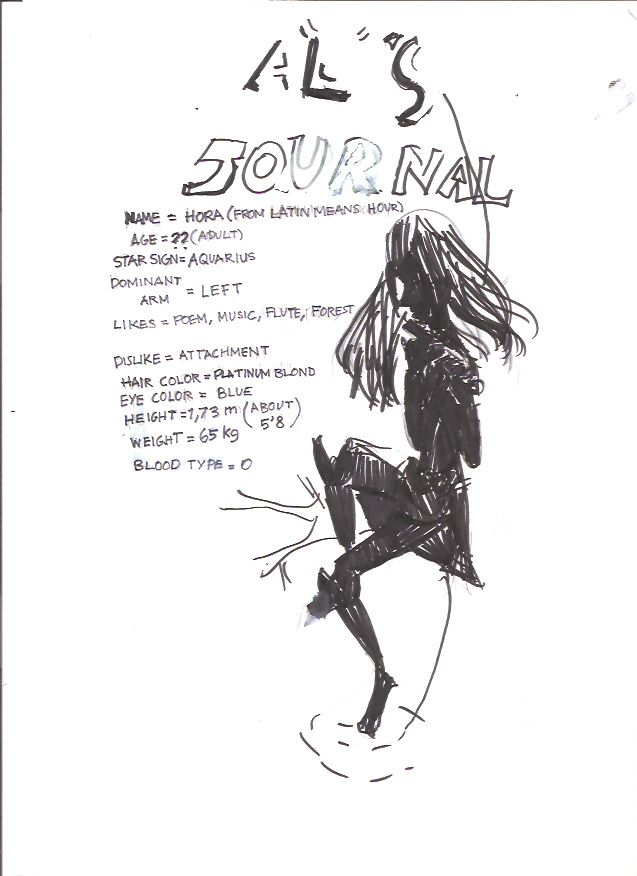 AL'S
JOURNAL
NAME = HORA (FROM LATIN MEANS HOUR)
AGE = ?? (ADULT)
STAR SIGN = AQUARIUS
DOMINANT ARM = LEFT
LIKES = POEM, MUSIC, FLUTE, FOREST
DISLIKE = ATTACHMENT
HAIR COLOR = PLATINUM BLOND
EYE COLOR = BLUE
HEIGHT = 1,73 m (ABOUT 5'8)
WEIGHT = 65 kg
BLOOD TYPE = O